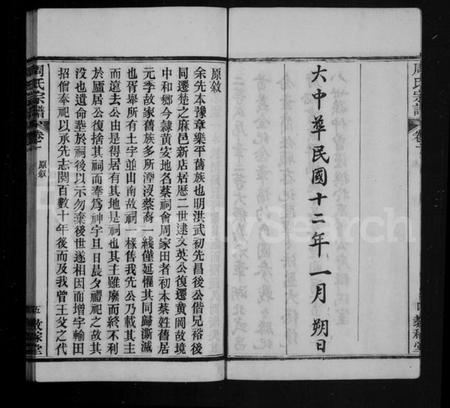 大中華民國十二年一月朔日
周氏宗譜
卷一
原敘
五
敦睦堂
原敘
余先本豫章樂平舊族也明洪武初先昌後公偕兄裕後
同遷楚之麻邑新店居歷二世逮文英公復遷黃岡故境
中和鄉今隸黃安地名蔡祠會周家田者初本蔡姓舊居
元季故家舊族多所湮沒蔡裔一綫僅延懼其同歸澌滅
也胥舉所有土宇並山南故祠一椽售我先公乃載其主
而遠去公由是得居有其地是祠也其主雖廢而終不利
於廬居公復捨其祠而奉為神宇且日晨夕禮祀之故其
沒也遺命塟於祠後以示勿棄後世遂相因而增宇輸田
招僧奉祀以承先志閱百數十年後而及我曾王父之代